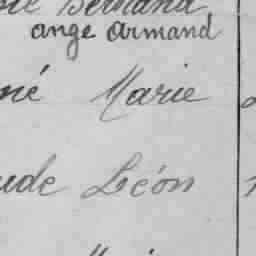 Bertrand
ange armand
né Marie
ude Léon